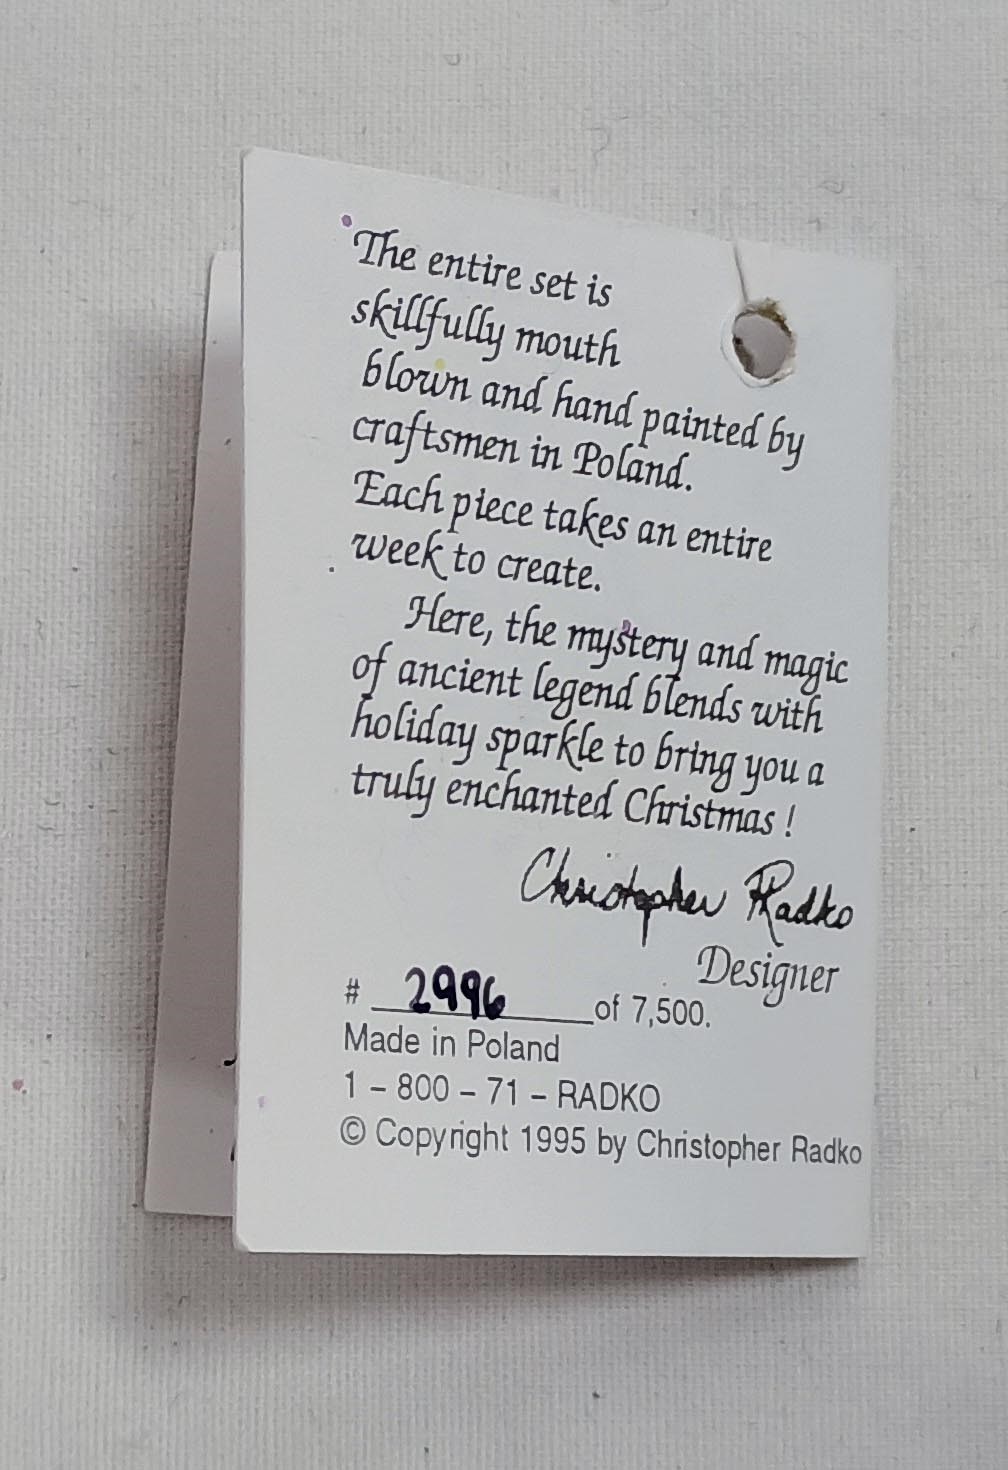 The entire set is
skillfully mouth
blown and hand painted by
craftsmen in Poland.
Each piece takes an entire
week to create.
Here, the mystery and magic
of ancient legend blends with
holiday sparkle to bring you a
truly enchanted Christmas !
Christopher Radko
Designer
# 2996 of 7,500.
Made in Poland
1 – 800 – 71 – RADKO
© Copyright 1995 by Christopher Radko